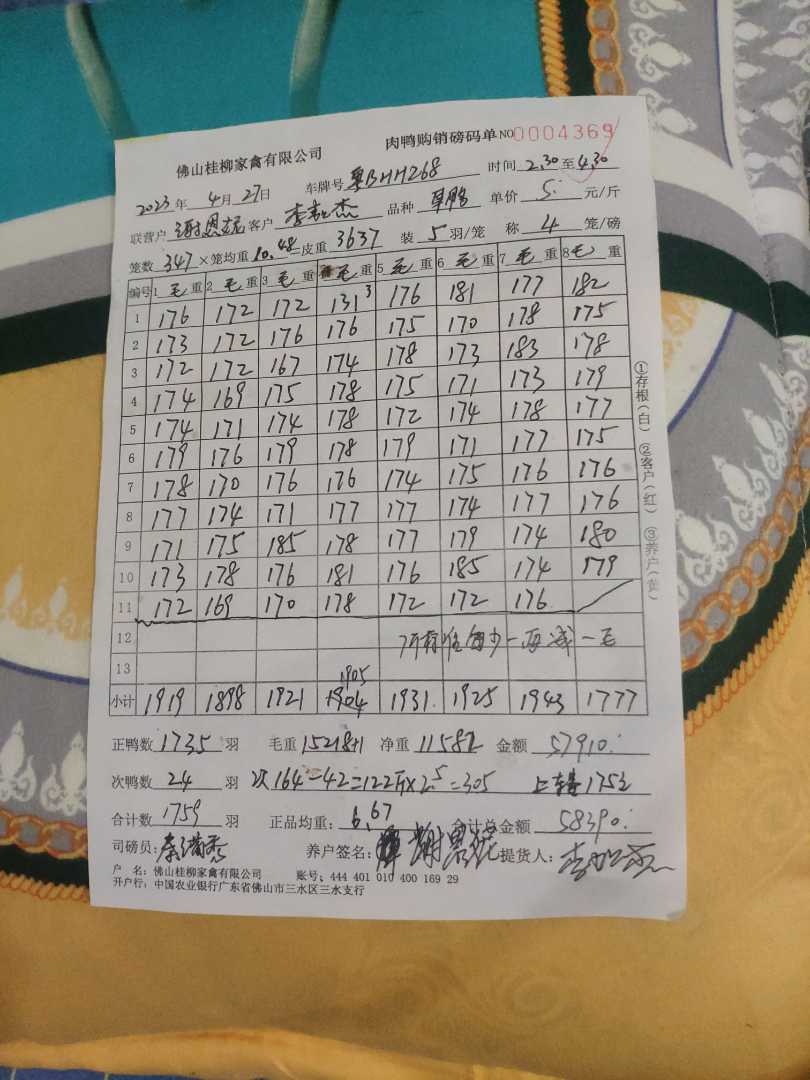 佛山桂柳家禽有限公司 肉鸭购销磅码单 NO 0004369
2023年 4月 27日 车牌号 粤BHH268 时间 2.30 至 4.30
联营户 谢恩 客户 李 杰 品种 草鸭 单价 5. 元/斤
笼数 347 ×笼均重 10.48 皮重 3637 装 5 羽/笼 称 4 笼/磅
编号 1 毛重 2 毛重 3 毛重 毛重 5 毛重 6 毛重 7 毛重 8 毛重
1 176 172 172 131 3 176 181 177 182
2 173 172 176 176 175 170 178 175
3 172 172 167 174 178 173 183 178
4 174 169 175 178 175 171 173 179
5 174 171 174 178 172 174 178 177
6 179 176 179 178 179 171 177 175
7 178 170 176 176 174 175 176 176
8 177 174 171 177 177 174 177 176
9 171 175 185 178 177 179 174 180
10 173 178 176 181 176 185 174 179
11 172 169 170 178 172 172 176
12 少一两减一毛
13
1905
小计 1919 1898 1921 1904 1931. 1925 1943 1777
正鸭数 1735 羽 毛重 15218+1 净重 11582 金额 57910.
次鸭数 24 羽 次164-42=122斤×2.5=305 上车 175元
合计数 1759 羽 正品均重: 6.67 合计总金额 58390.
司磅员: 养户签名: 谢恩 提货人:
户 名: 佛山桂柳家禽有限公司 账号: 444 401 010 400 169 29
开户行: 中国农业银行广东省佛山市三水区三水支行
①存根(白) ②客户(红) ③养户(黄)